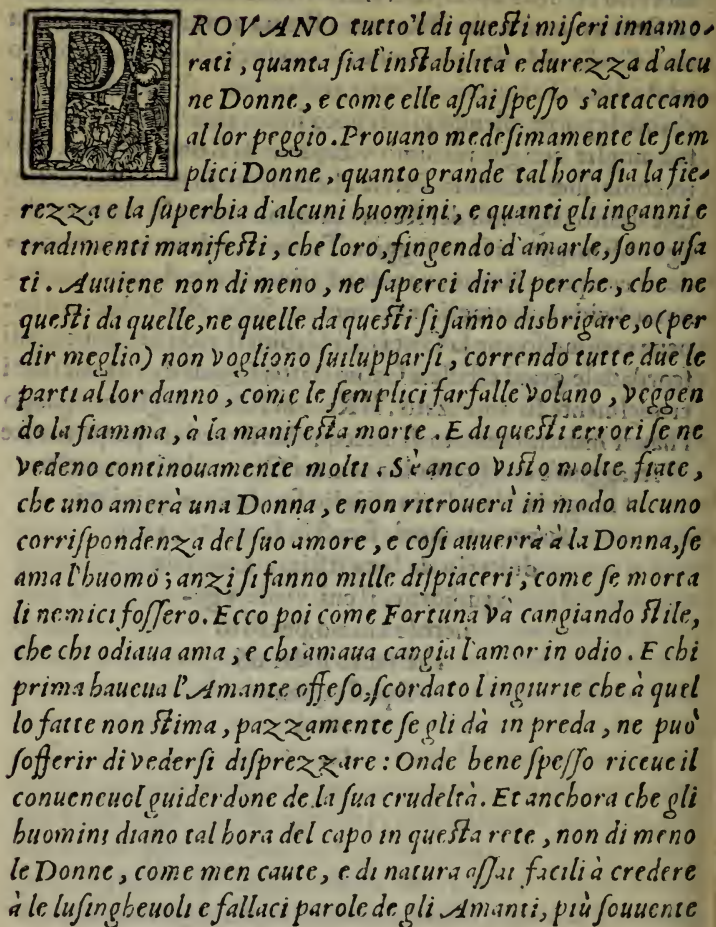 PROVANO tutto'l di questi miseri innamo-
rati, quanta sia l'instabilità e durezza d'alcu
ne Donne, e come elle assai spesso s'attaccano
al lor peggio. Prouano medesimamente le sem
plici Donne, quanto grande tal hora sia la fie-
rezza e la superbia d'alcuni huomini, e quanti gli inganni e
tradimenti manifesti, che loro, fingendo d'amarle, sono usa
ti. Auuiene non di meno, ne saperei dir il perche, che ne
questi da quelle, ne quelle da questi si sanno disbrigare, o (per
dir meglio) non vogliono suilupparsi, correndo tutte due le
parti al lor danno, come le semplici farfalle volano, veggen
do la fiamma, à la manifesta morte. E di questi errori se ne
vedeno continouamente molti. S'è anco visto molte fiate,
che uno amerà una Donna, e non ritrouerà in modo alcuno
corrispondenza del suo amore, e cosi auuerrà à la Donna, se
ama l'huomo; anzi si fanno mille dispiaceri, come se morta
li nemici fossero. Ecco poi come Fortuna và cangiando stile,
che chi odiaua ama, e chi amaua cangia l'amor in odio. E chi
prima haueua l'Amante offeso, scordato l ingiurie che à quel
lo fatte non stima, pazzamente se gli dà in preda, ne può
sofferir di vedersi disprezzare: Onde bene spesso riceue il
conueneuol guiderdone de la sua crudeltà. Et anchora che gli
huomini diano tal hora del capo in questa rete, non di meno
le Donne, come men caute, e di natura assai facili à credere
à le lusingheuoli e fallaci parole de gli Amanti, più souuente